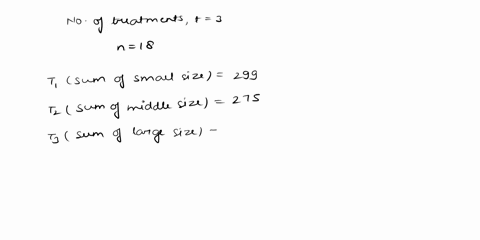 No. of treatments, t = 3
n = 18
T1 (sum of small size) = 299
T2 (sum of middle size) = 275
T3 (sum of large size) -